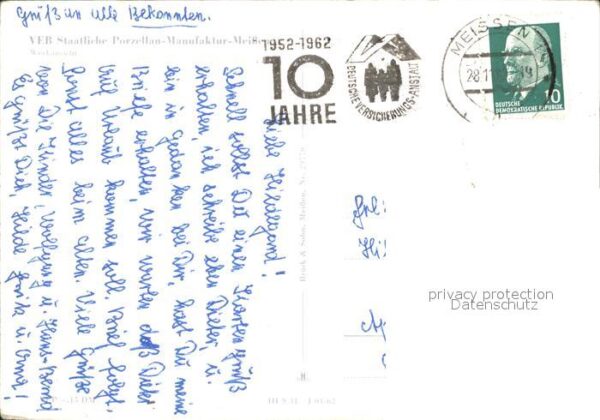 Gruß an alle Bekannten.
VEB Staatliche Porzellan-Manufaktur-Meißen
Werkansicht
1952-1962
10
JAHRE
DEUTSCHE VERSICHERUNGS-ANSTALT
MEISSEN
28.11
10
DEUTSCHE
DEMOKRATISCHE REPUBLIK
Liebe Hildegard!
Schnell sollst Du einen Kartengruß
erhalten, ich schreibe eben Dieter, u.
bin in Gedanken bei Dir, hast Du meine
Briefe erhalten, wir warten daß Dieter
auf Urlaub kommen soll. Brief folgt.
Sonst alles beim alten. Viele Grüße
von Die Kinder, Wolfgang u. Hans-Bernd
Es grüßt Dich, Hilde u. Oma!
Druck & Sohn, Meißen, Nr.
privacy protection
Datenschutz